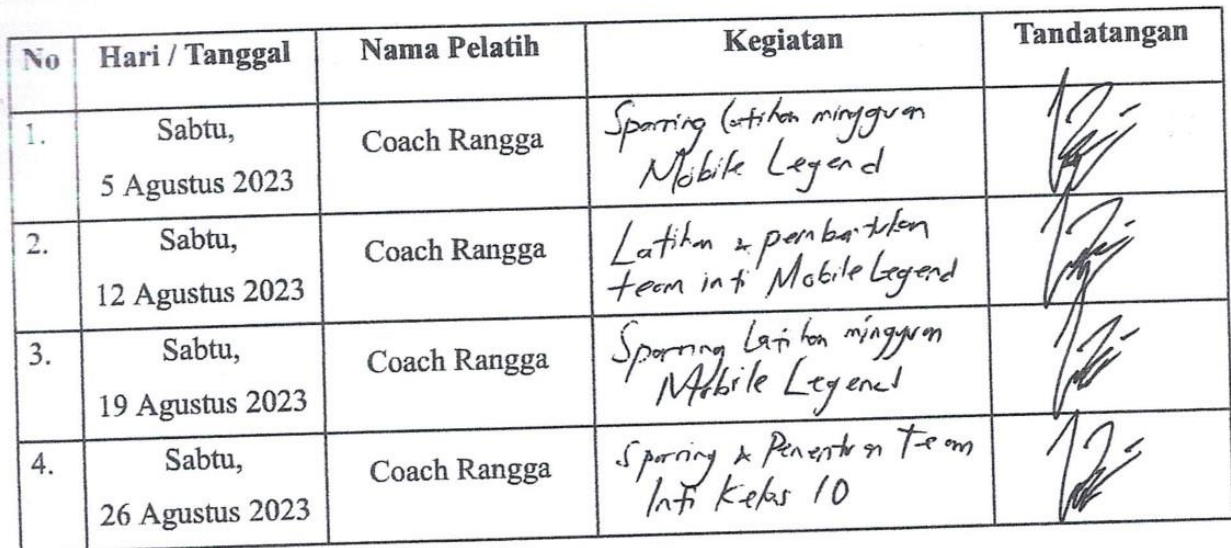 No Hari / Tanggal Nama Pelatih Kegiatan Tandatangan
1. Sabtu,
5 Agustus 2023
Coach Rangga
Sparring latihan mingguan
Mobile Legend
2. Sabtu,
12 Agustus 2023
Coach Rangga
Latihan & pembentukan
team inti Mobile Legend
3. Sabtu,
19 Agustus 2023
Coach Rangga
Sparring Latihan mingguan
Mobile Legend
4. Sabtu,
26 Agustus 2023
Coach Rangga
Sparring & Penentuan Team
Inti Kelas 10